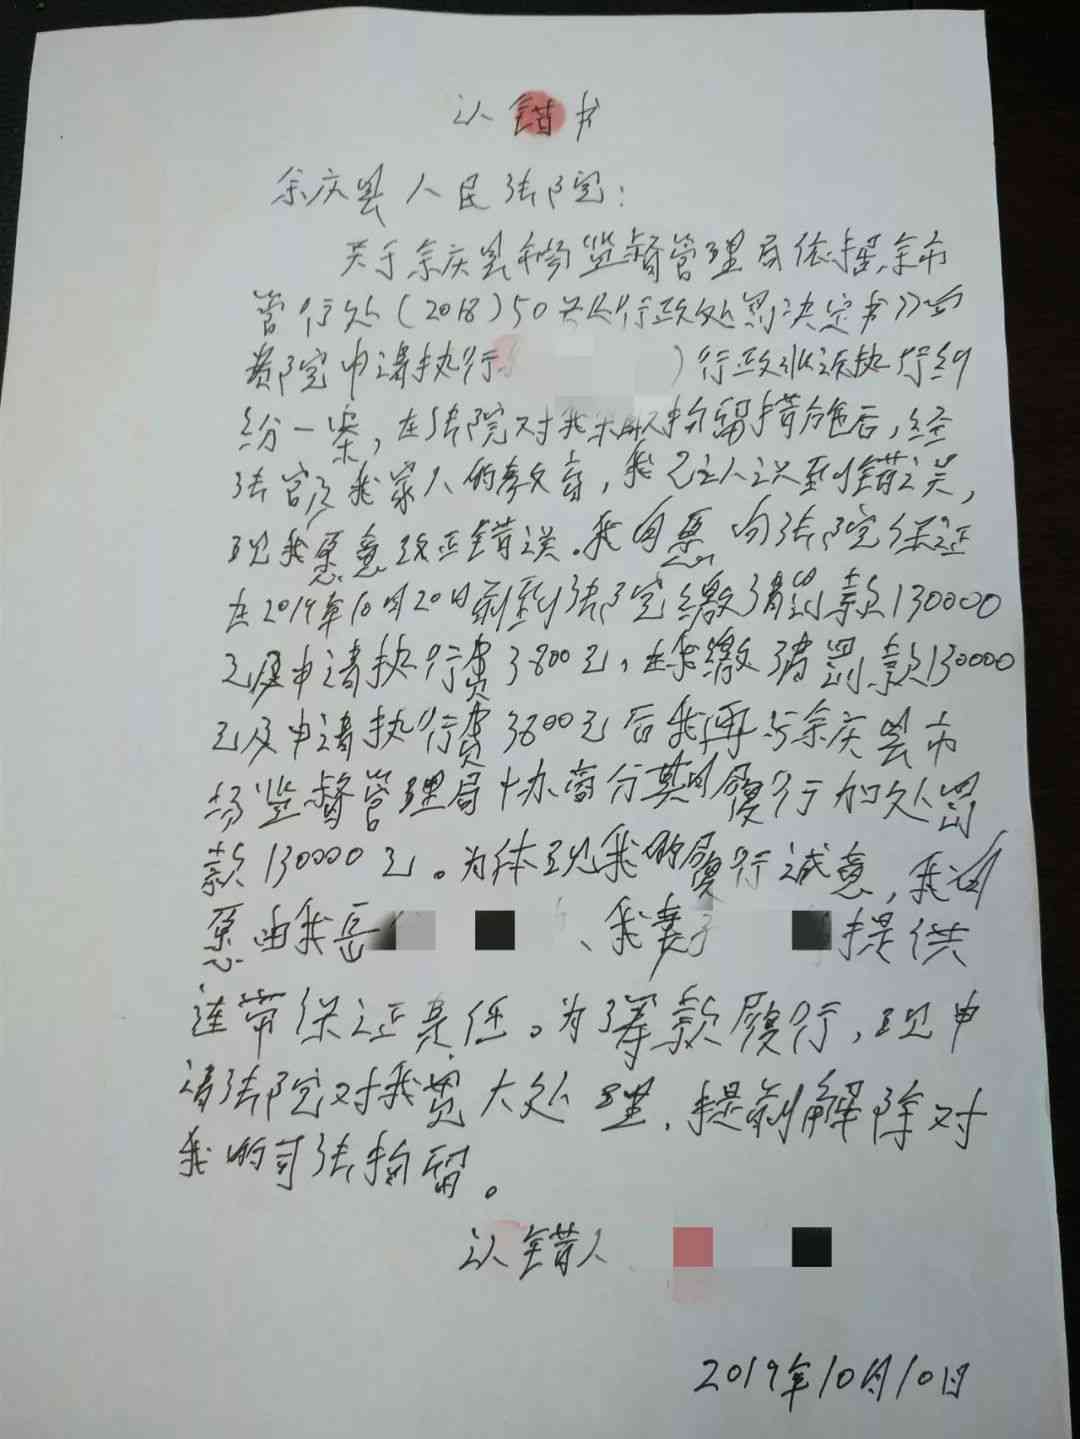 认错书
余庆县人民法院：
关于余庆县市场监督管理局依据余市
管行处(2018)50号《行政处罚决定书》向
贵院申请执行 )行政非诉执行纠
纷一案，在法院对我采取拘留措施后，经
法官及我家人的教育，我已认识到错误，
现我愿意改正错误。我自愿向法院保证
在2019年10月20日前到法院缴清罚款130000
元及申请执行费3800元，在我缴清罚款130000
元及申请执行费3800元后我再与余庆县市
场监督管理局协商分期履行加处罚
款130000元。为体现我的履行诚意，我自
愿由我岳 、我妻 提供
连带保证责任。为筹款履行，现申
请法院对我宽大处理，提前解除对
我的司法拘留。
认错人
2019年10月10日